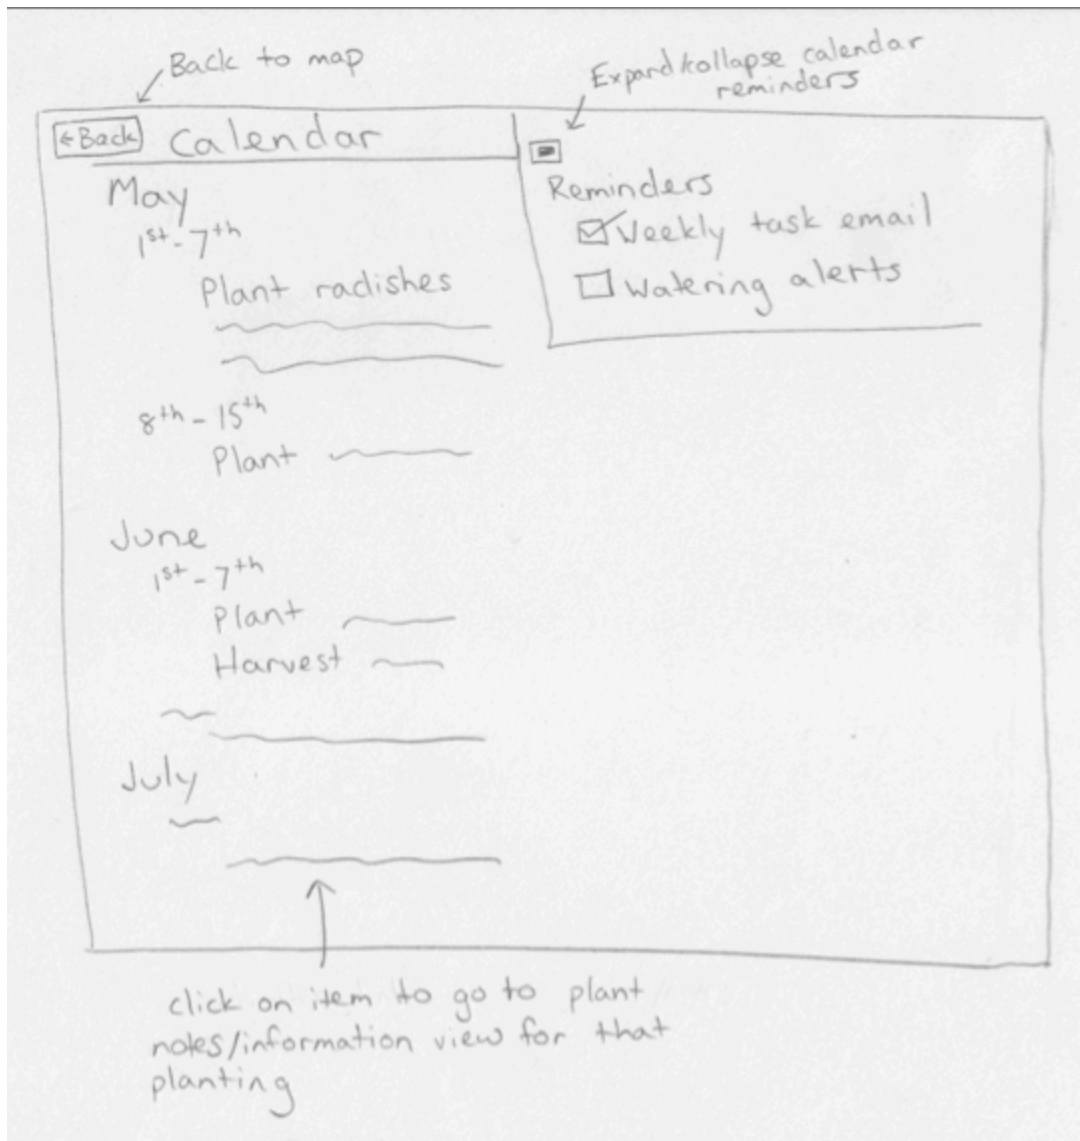 Back to map
Expand/collapse calendar
reminders
←Back
Calendar
May
1st - 7th
Plant radishes
8th - 15th
Plant
June
1st - 7th
Plant
Harvest
July
Reminders
Weekly task email
Watering alerts
click on item to go to plant
notes/information view for that
planting